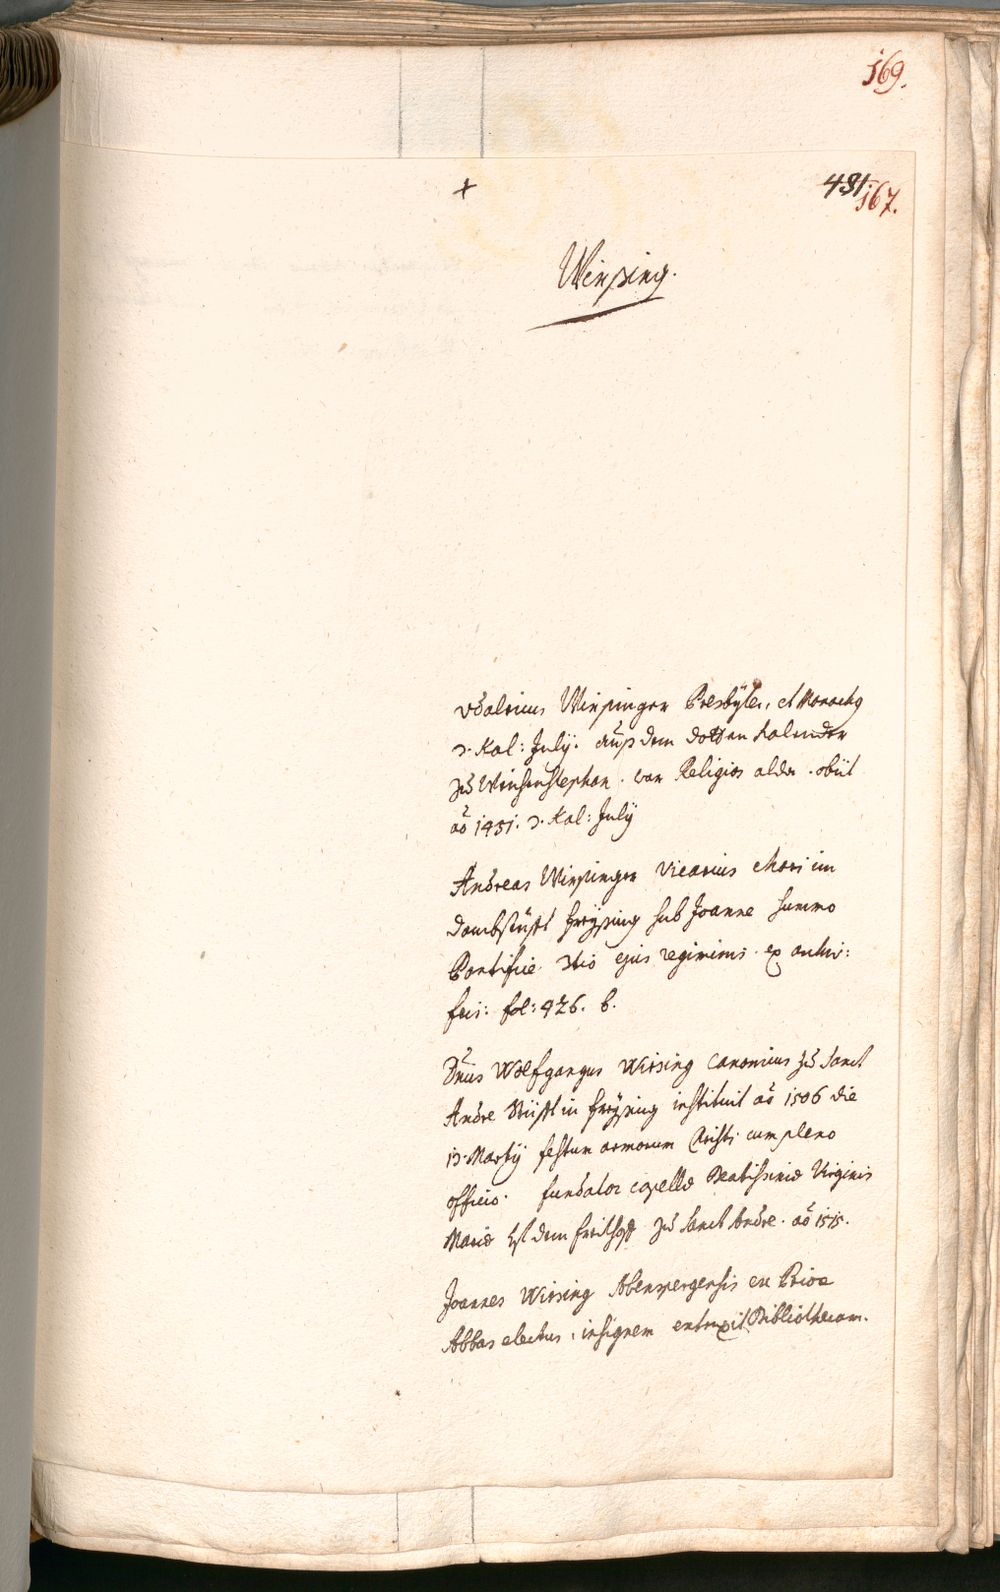 169.
+
481.
167.
Wirsing.
Vdalricus Wirsinger Presbyter, et Monachq
3. Kal: July. auß dem dotten Kalender
zů Weihenstephan. war Religios alda. obijt
aõ 1451. 3. Kal: July
Andreas Wirsinger Vicarius Chori im
Dombstüfft Freÿsing sub Joanne summo
Pontifice ejus regiminis. ex
fol: 426. b.
Dñus Wolfgangus Wirsing Canonicus zů Sanct
Andre Stüfft in Freÿsing instituit aõ 1506 die
13. Martij festum armorum Christi cum pleno
officio. fundator capellæ Beatissimæ Virginis
Mariæ dem Freithoff zů Sanct Andre. aõ 1515.
Joannes Wirsing Abenspergensis ex Priore
Abbas electus, insignem extruxit Bibliothecam.